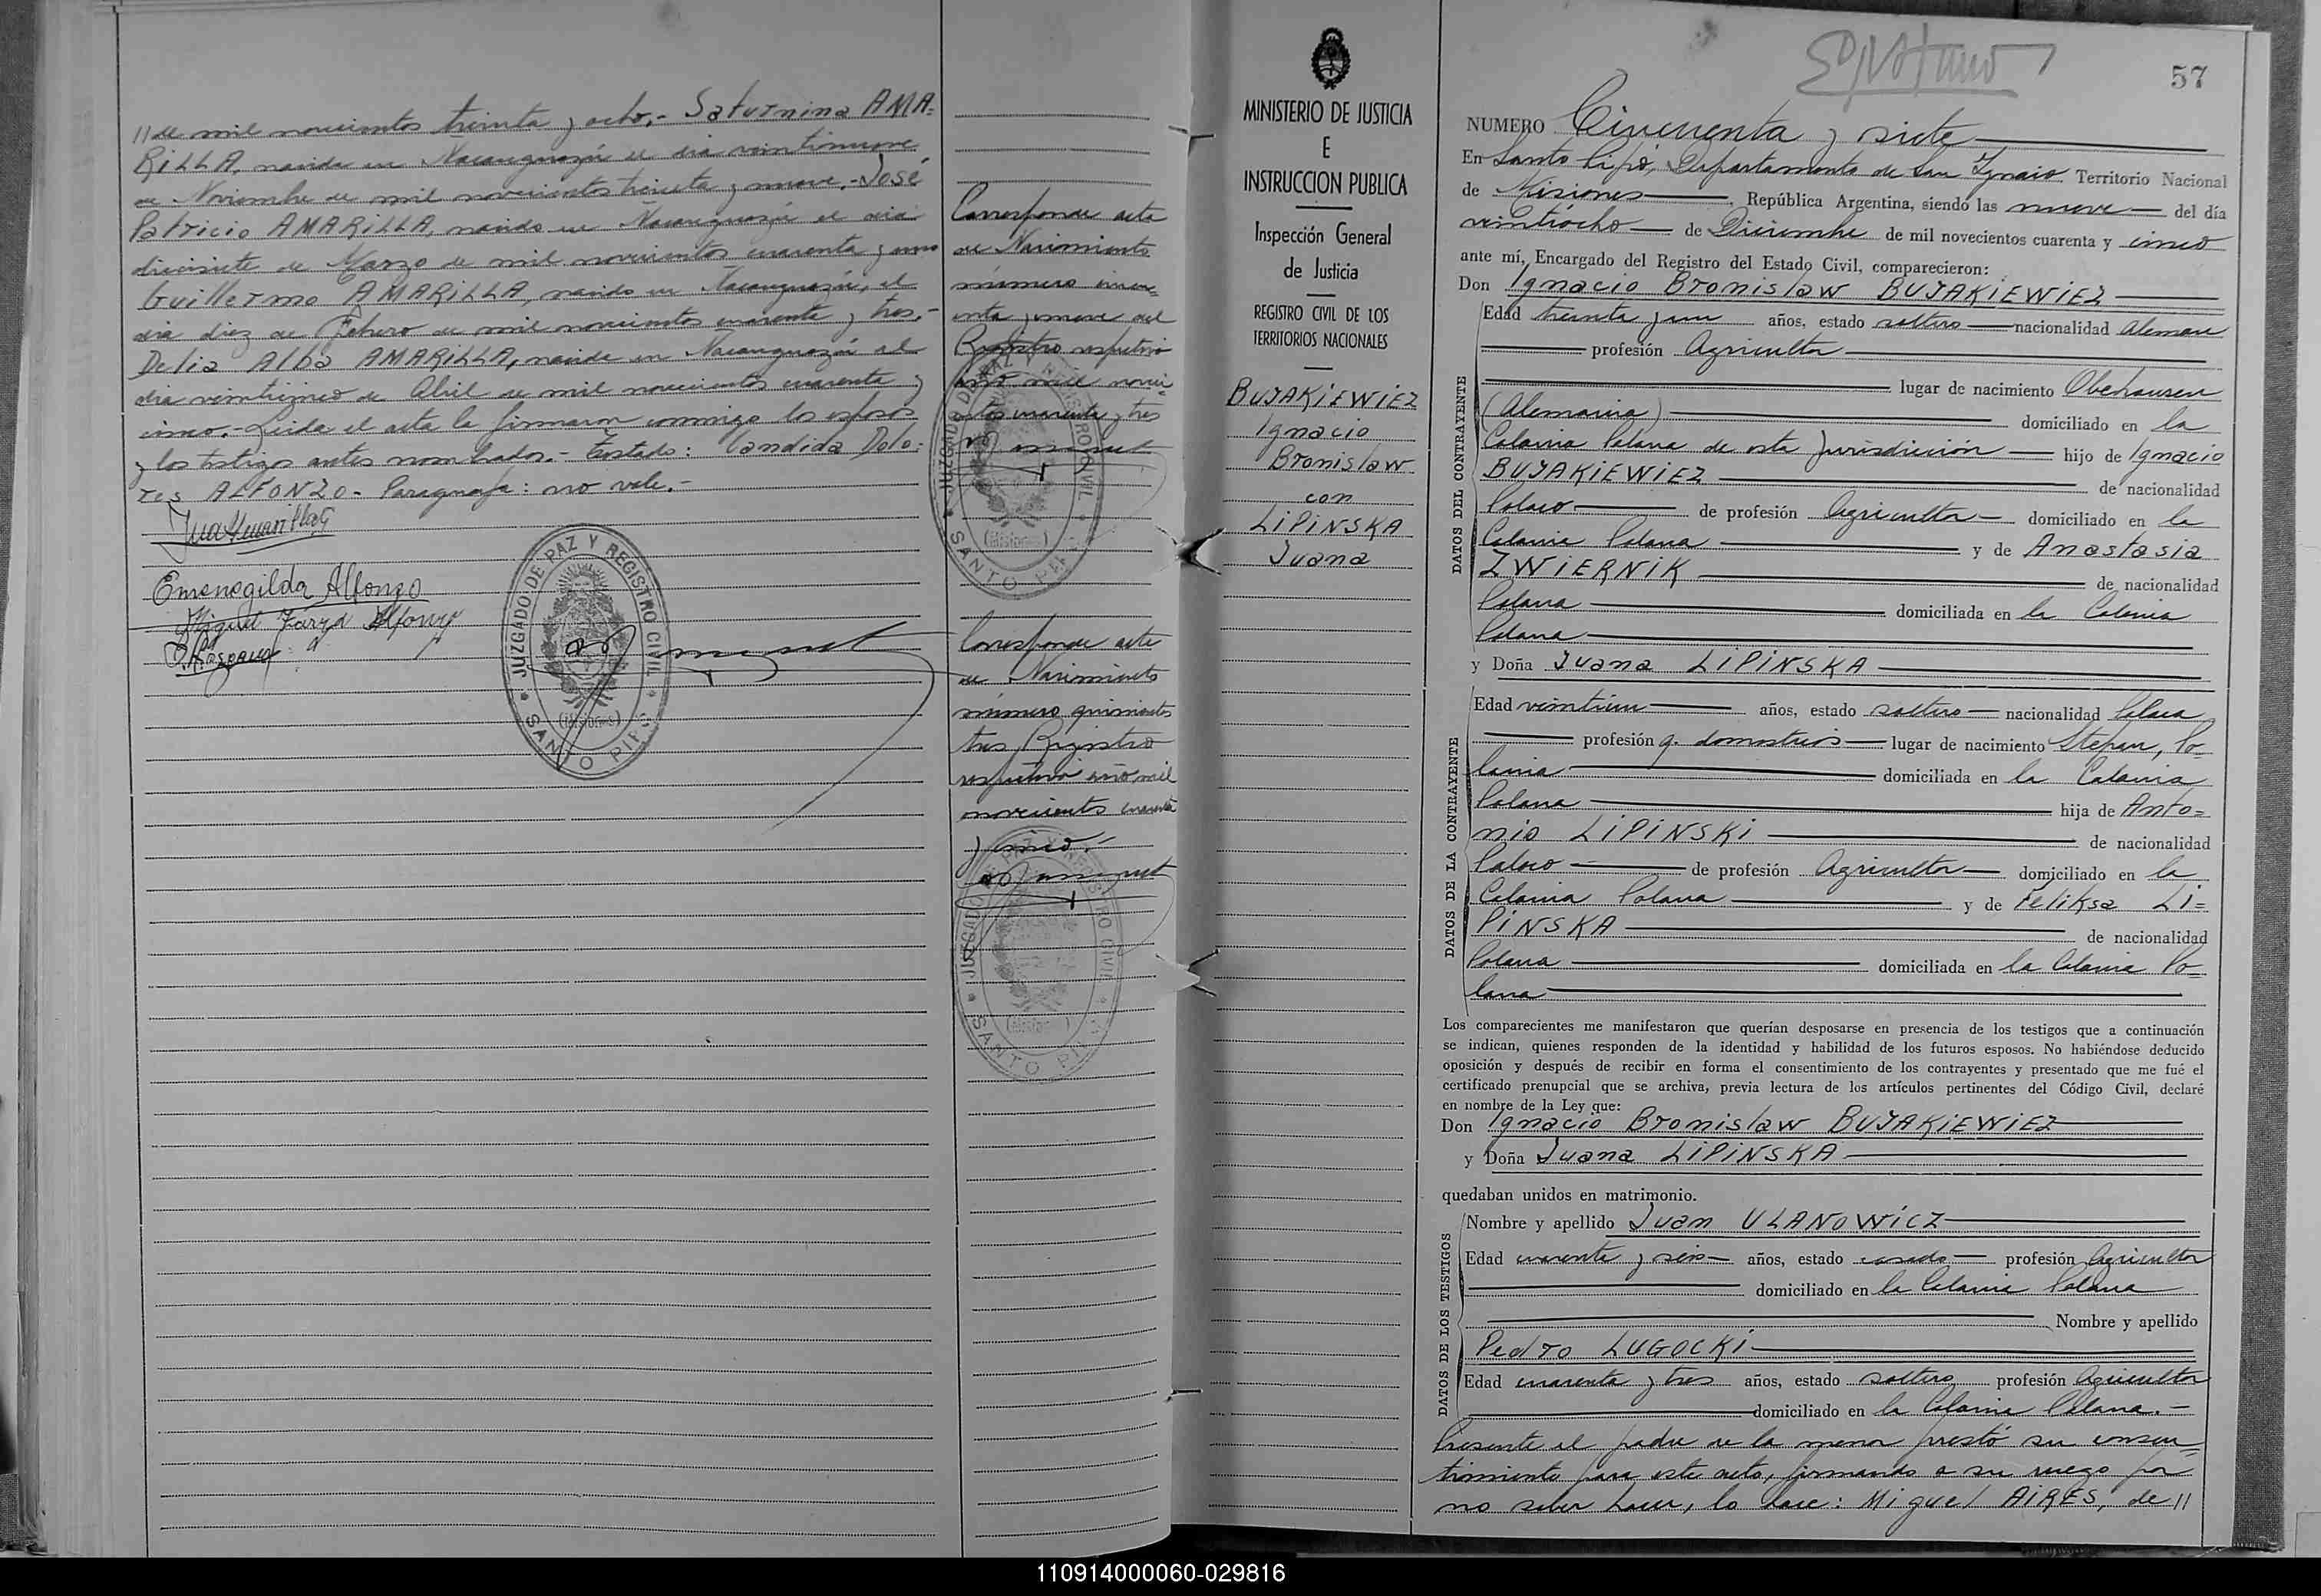 //de mil novecientos treinta y ocho.- Saturnina AMA=
RILLA, nacida en Ñacanguazú el dia veintinueve
de Noviembre de mil novecientos treinta y nueve.- José
Patricio AMARILLA, nacido en Ñacanguazú el dia
diecisiete de Marzo de mil novecientos cuarenta y uno
Guillermo AMARILLA, nacido en Ñacanguazú, el
dia diez de Febrero de mil novecientos cuarenta y tres.-
Delia Alba AMARILLA, nacida en Ñacanguazú el
dia veinticinco de Abril de mil novecientos cuarenta y
cinco.- Leida el acta la firmaron conmigo los esposos
y los testigos antes nombrados.- Testado: Candida Dolo=
res ALFONZO- Paraguaya: no vale.-
Emenegilda Alfonzo
JUZGADO DE PAZ Y REGISTRO CIVIL
(Misiones)
SANTO PIPÓ
Corresponde acta
de Nacimiento
número cincu=
enta y nueve del
Registro respectivo
año mil novecientos
cuarenta y tres
JUZGADO DE PAZ Y REGISTRO CIVIL
(Misiones)
SANTO PIPÓ
Corresponde acta
de Nacimiento
número quinientos
tres, Registro
respectivo año mil
novecientos cuarenta
y cinco.-
JUZGADO DE PAZ Y REGISTRO CIVIL
(Misiones)
SANTO PIPÓ
MINISTERIO DE JUSTICIA
E
INSTRUCCION PUBLICA
Inspección General
de Justicia
REGISTRO CIVIL DE LOS
TERRITORIOS NACIONALES
BUJAKIEWIEZ
Ignacio
Bronislaw
con
LIPINSKA
Juana
57
NUMERO Cincuenta y siete
En Santo Pipó, Departamento de San Ignacio Territorio Nacional
de Misiones, República Argentina, siendo las nueve del día
veintiocho de Diciembre de mil novecientos cuarenta y cinco
ante mí, Encargado del Registro del Estado Civil, comparecieron:
Don Ignacio Bronislaw BUJAKIEWIEZ
DATOS DEL CONTRAYENTE
Edad treinta y un años, estado soltero nacionalidad Alemana
profesión Agricultor
lugar de nacimiento Oberhausen
(Alemania) domiciliado en la
Colonia Polana de esta Jurisdicción hijo de Ignacio
BUJAKIEWIEZ de nacionalidad
Polaco de profesión Agricultor domiciliado en la
Colonia Polana y de Anastasia
ZWIERNIK de nacionalidad
Polaca domiciliada en la Colonia
Polana
y Doña Juana LIPINSKA
DATOS DE LA CONTRAYENTE
Edad veintiun años, estado soltera nacionalidad Polaca
profesión q. domesticos lugar de nacimiento Stepan, Po=
lonia domiciliada en la Colonia
Polana hija de Anto=
nio LIPINSKI de nacionalidad
Polaco de profesión Agricultor domiciliado en la
Colonia Polana y de Feliksa LI=
PINSKA de nacionalidad
Polaca domiciliada en la Colonia Po=
lana
Los comparecientes me manifestaron que querían desposarse en presencia de los testigos que a continuación
se indican, quienes responden de la identidad y habilidad de los futuros esposos. No habiéndose deducido
oposición y después de recibir en forma el consentimiento de los contrayentes y presentado que me fué el
certificado prenupcial que se archiva, previa lectura de los artículos pertinentes del Código Civil, declaré
en nombre de la Ley que:
Don Ignacio Bronislaw BUJAKIEWIEZ
y Doña Juana LIPINSKA
quedaban unidos en matrimonio.
DATOS DE LOS TESTIGOS
Nombre y apellido Juan ULANOWICZ
Edad cuarenta y seis años, estado casado profesión Agricultor
domiciliado en la Colonia Polana
Nombre y apellido
Pedro LUGOCKI
Edad cuarenta y tres años, estado soltero profesión Agricultor
domiciliado en la Colonia Polana.-
Presente el padre de la menor prestó su consen=
timiento para este acto, firmando a su ruego por
no saber hacer, lo hace: Miguel AIRES, de //
110914000060-029816